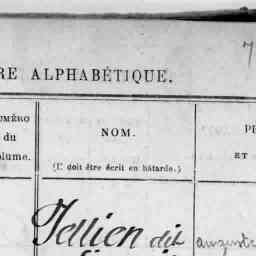 7
RE ALPHABÉTIQUE.
UMÉRO
du
olume.
NOM.
(Il doit être écrit en bâtarde.)
P
ET
Jellien dit
auguste